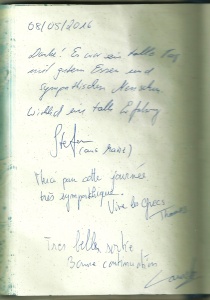 08/05/2016
Danke! Es war ein toller Tag
mit gutem Essen und
sympathischen Menschen
Wirklich ein tolle Erfahrung
Stefan
Merci pour cette journée
très sympathique.
Vive les Grecs
Thomas
Tres belle sortie
Bonne continuation